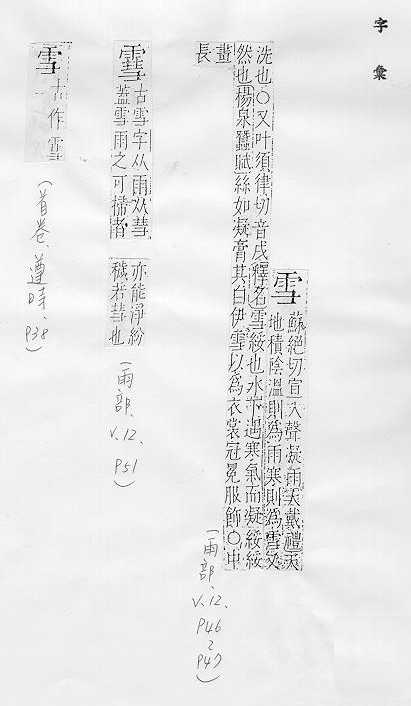 字彙
雪
蘇絕切宣入聲凝雨大戴禮天
地積陰溫則為雨寒則為雪又
洗也○又叶須律切音戌釋名雪綏也水下遇寒氣而凝綏綏
然也楊泉蠶賦絲如凝膏其白伊雪以為衣裳冠冕服飾○中
畫長
(雨部、V.12、P46~P47)
䨮
古雪字从雨从彗
蓋雪雨之可掃者
亦能淨紛
穢若彗也
(雨部、V.12、P51)
雪 古作䨮
(首卷、遵時、P38)